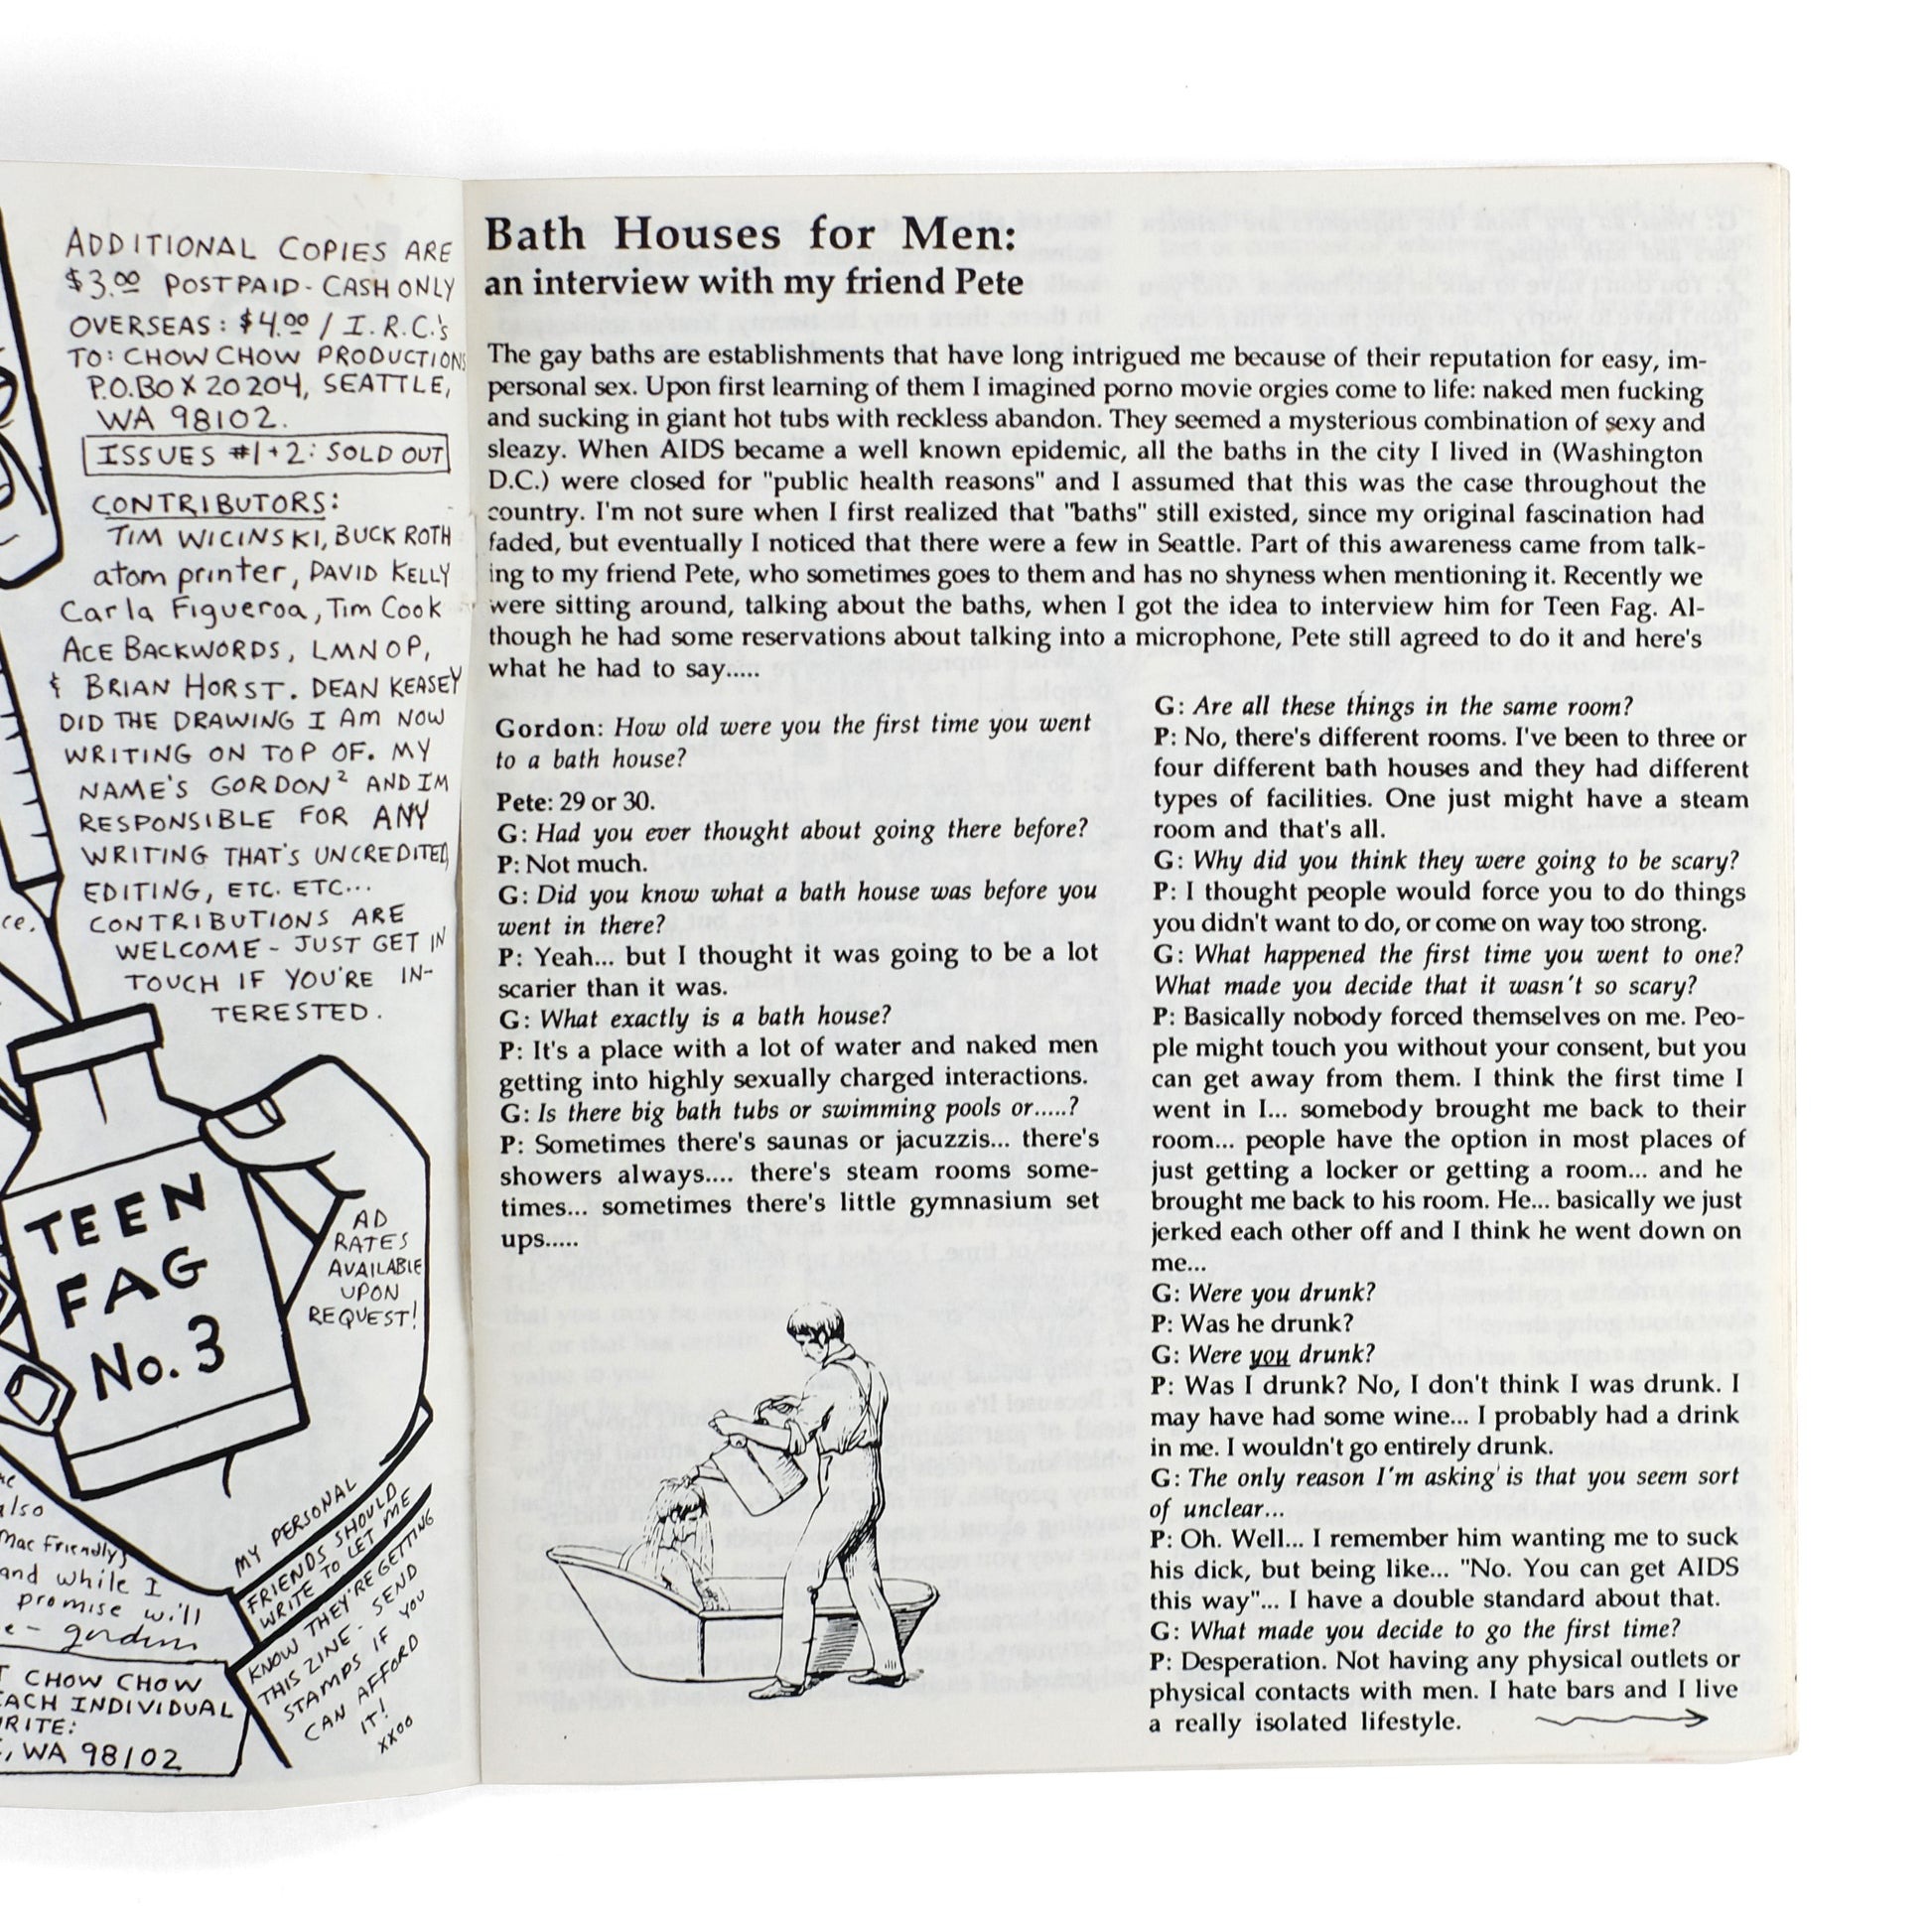 ADDITIONAL COPIES ARE
$3.00 POSTPAID - CASH ONLY
OVERSEAS: $4.00 / I.R.C.'s
TO: CHOW CHOW PRODUCTIONS
P.O. BOX 20204, SEATTLE,
WA 98102.
ISSUES #1+2: SOLD OUT
CONTRIBUTORS:
TIM WICINSKI, BUCK ROTH
atom printer, DAVID KELLY
Carla Figueroa, Tim Cook
ACE BACKWORDS, LMNOP,
& BRIAN HORST. DEAN KEASEY
DID THE DRAWING I AM NOW
WRITING ON TOP OF. MY
NAME'S GORDON² AND IM
RESPONSIBLE FOR ANY
WRITING THAT'S UNCREDITED,
EDITING, ETC. ETC...
CONTRIBUTIONS ARE
WELCOME - JUST GET IN
TOUCH IF YOU'RE IN-
TERESTED.
ce,
TEEN
FAG
No. 3
AD
RATES
AVAILABLE
UPON
REQUEST!
also
Mac Friendly)
and while I
promise will
e - gordon
MY PERSONAL
FRIENDS SHOULD
WRITE TO LET ME
KNOW THEY'RE GETTING
THIS ZINE - SEND
STAMPS IF YOU
CAN AFFORD
IT!
xxoo
T CHOW CHOW
EACH INDIVIDUAL
WRITE:
, WA 98102
Bath Houses for Men:
an interview with my friend Pete
The gay baths are establishments that have long intrigued me because of their reputation for easy, im-
personal sex. Upon first learning of them I imagined porno movie orgies come to life: naked men fucking
and sucking in giant hot tubs with reckless abandon. They seemed a mysterious combination of sexy and
sleazy. When AIDS became a well known epidemic, all the baths in the city I lived in (Washington
D.C.) were closed for "public health reasons" and I assumed that this was the case throughout the
country. I'm not sure when I first realized that "baths" still existed, since my original fascination had
faded, but eventually I noticed that there were a few in Seattle. Part of this awareness came from talk-
ing to my friend Pete, who sometimes goes to them and has no shyness when mentioning it. Recently we
were sitting around, talking about the baths, when I got the idea to interview him for Teen Fag. Al-
though he had some reservations about talking into a microphone, Pete still agreed to do it and here's
what he had to say.....
Gordon: How old were you the first time you went
to a bath house?
Pete: 29 or 30.
G: Had you ever thought about going there before?
P: Not much.
G: Did you know what a bath house was before you
went in there?
P: Yeah... but I thought it was going to be a lot
scarier than it was.
G: What exactly is a bath house?
P: It's a place with a lot of water and naked men
getting into highly sexually charged interactions.
G: Is there big bath tubs or swimming pools or.....?
P: Sometimes there's saunas or jacuzzis... there's
showers always.... there's steam rooms some-
times... sometimes there's little gymnasium set
ups.....
G: Are all these things in the same room?
P: No, there's different rooms. I've been to three or
four different bath houses and they had different
types of facilities. One just might have a steam
room and that's all.
G: Why did you think they were going to be scary?
P: I thought people would force you to do things
you didn't want to do, or come on way too strong.
G: What happened the first time you went to one?
What made you decide that it wasn't so scary?
P: Basically nobody forced themselves on me. Peo-
ple might touch you without your consent, but you
can get away from them. I think the first time I
went in I... somebody brought me back to their
room... people have the option in most places of
just getting a locker or getting a room... and he
brought me back to his room. He... basically we just
jerked each other off and I think he went down on
me...
G: Were you drunk?
P: Was he drunk?
G: Were you drunk?
P: Was I drunk? No, I don't think I was drunk. I
may have had some wine... I probably had a drink
in me. I wouldn't go entirely drunk.
G: The only reason I'm asking is that you seem sort
of unclear...
P: Oh. Well... I remember him wanting me to suck
his dick, but being like... "No. You can get AIDS
this way"... I have a double standard about that.
G: What made you decide to go the first time?
P: Desperation. Not having any physical outlets or
physical contacts with men. I hate bars and I live
a really isolated lifestyle.